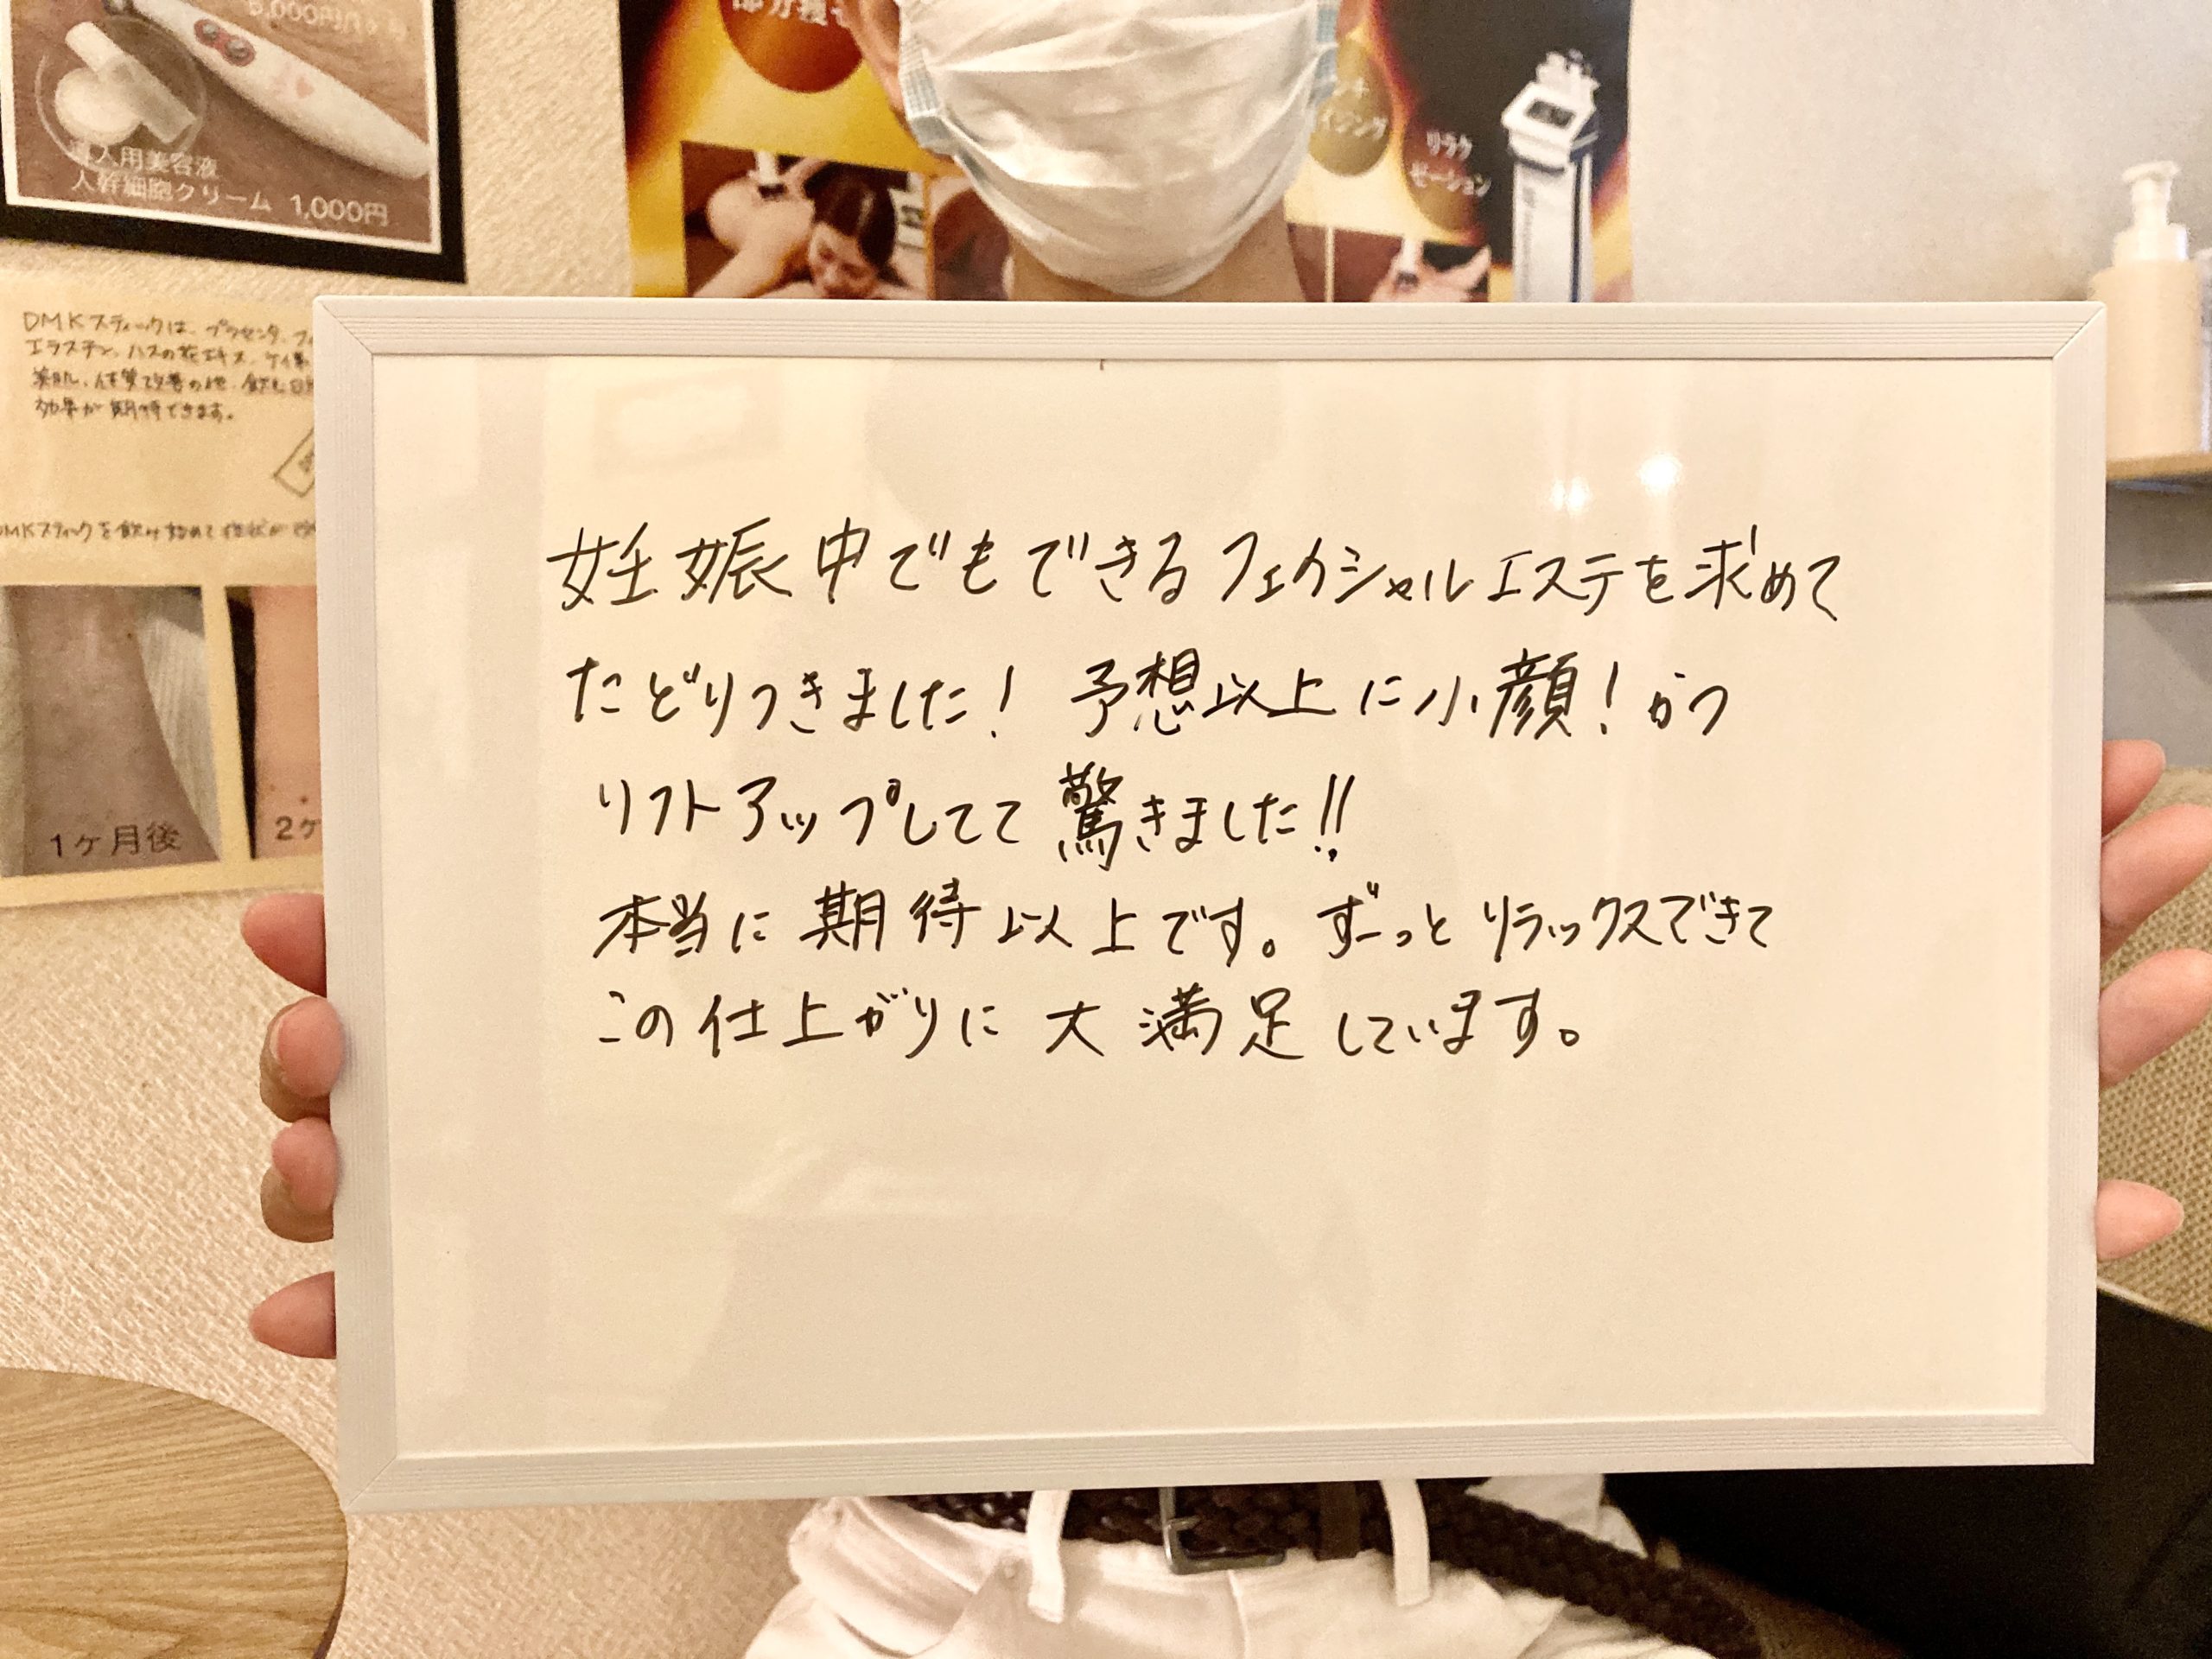 5,000円/1ヶ月
導入用美容液
人幹細胞クリーム 1,000円
部分痩せ
リラク
ゼーション
DMKスティックは、プラセンタ、フィ
エラスチン、ハスの花エキス、ケイ素
美肌、体質改善の他、飲む日
効果が期待できます。
DMKスティックを飲み始めて症状が
1ヶ月後
2ヶ
妊娠中でもできるフェイシャルエステを求めて
たどりつきました! 予想以上に小顔!かつ
リフトアップしてて驚きました!!
本当に期待以上です。ずーっとリラックスできて
この仕上がりに大満足しています。